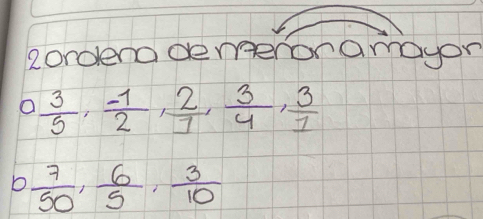 2 ordena de menor a mayor
a 3/5, -1/2, 2/7, 3/4, 3/7
b 7/50, 6/5, 3/10